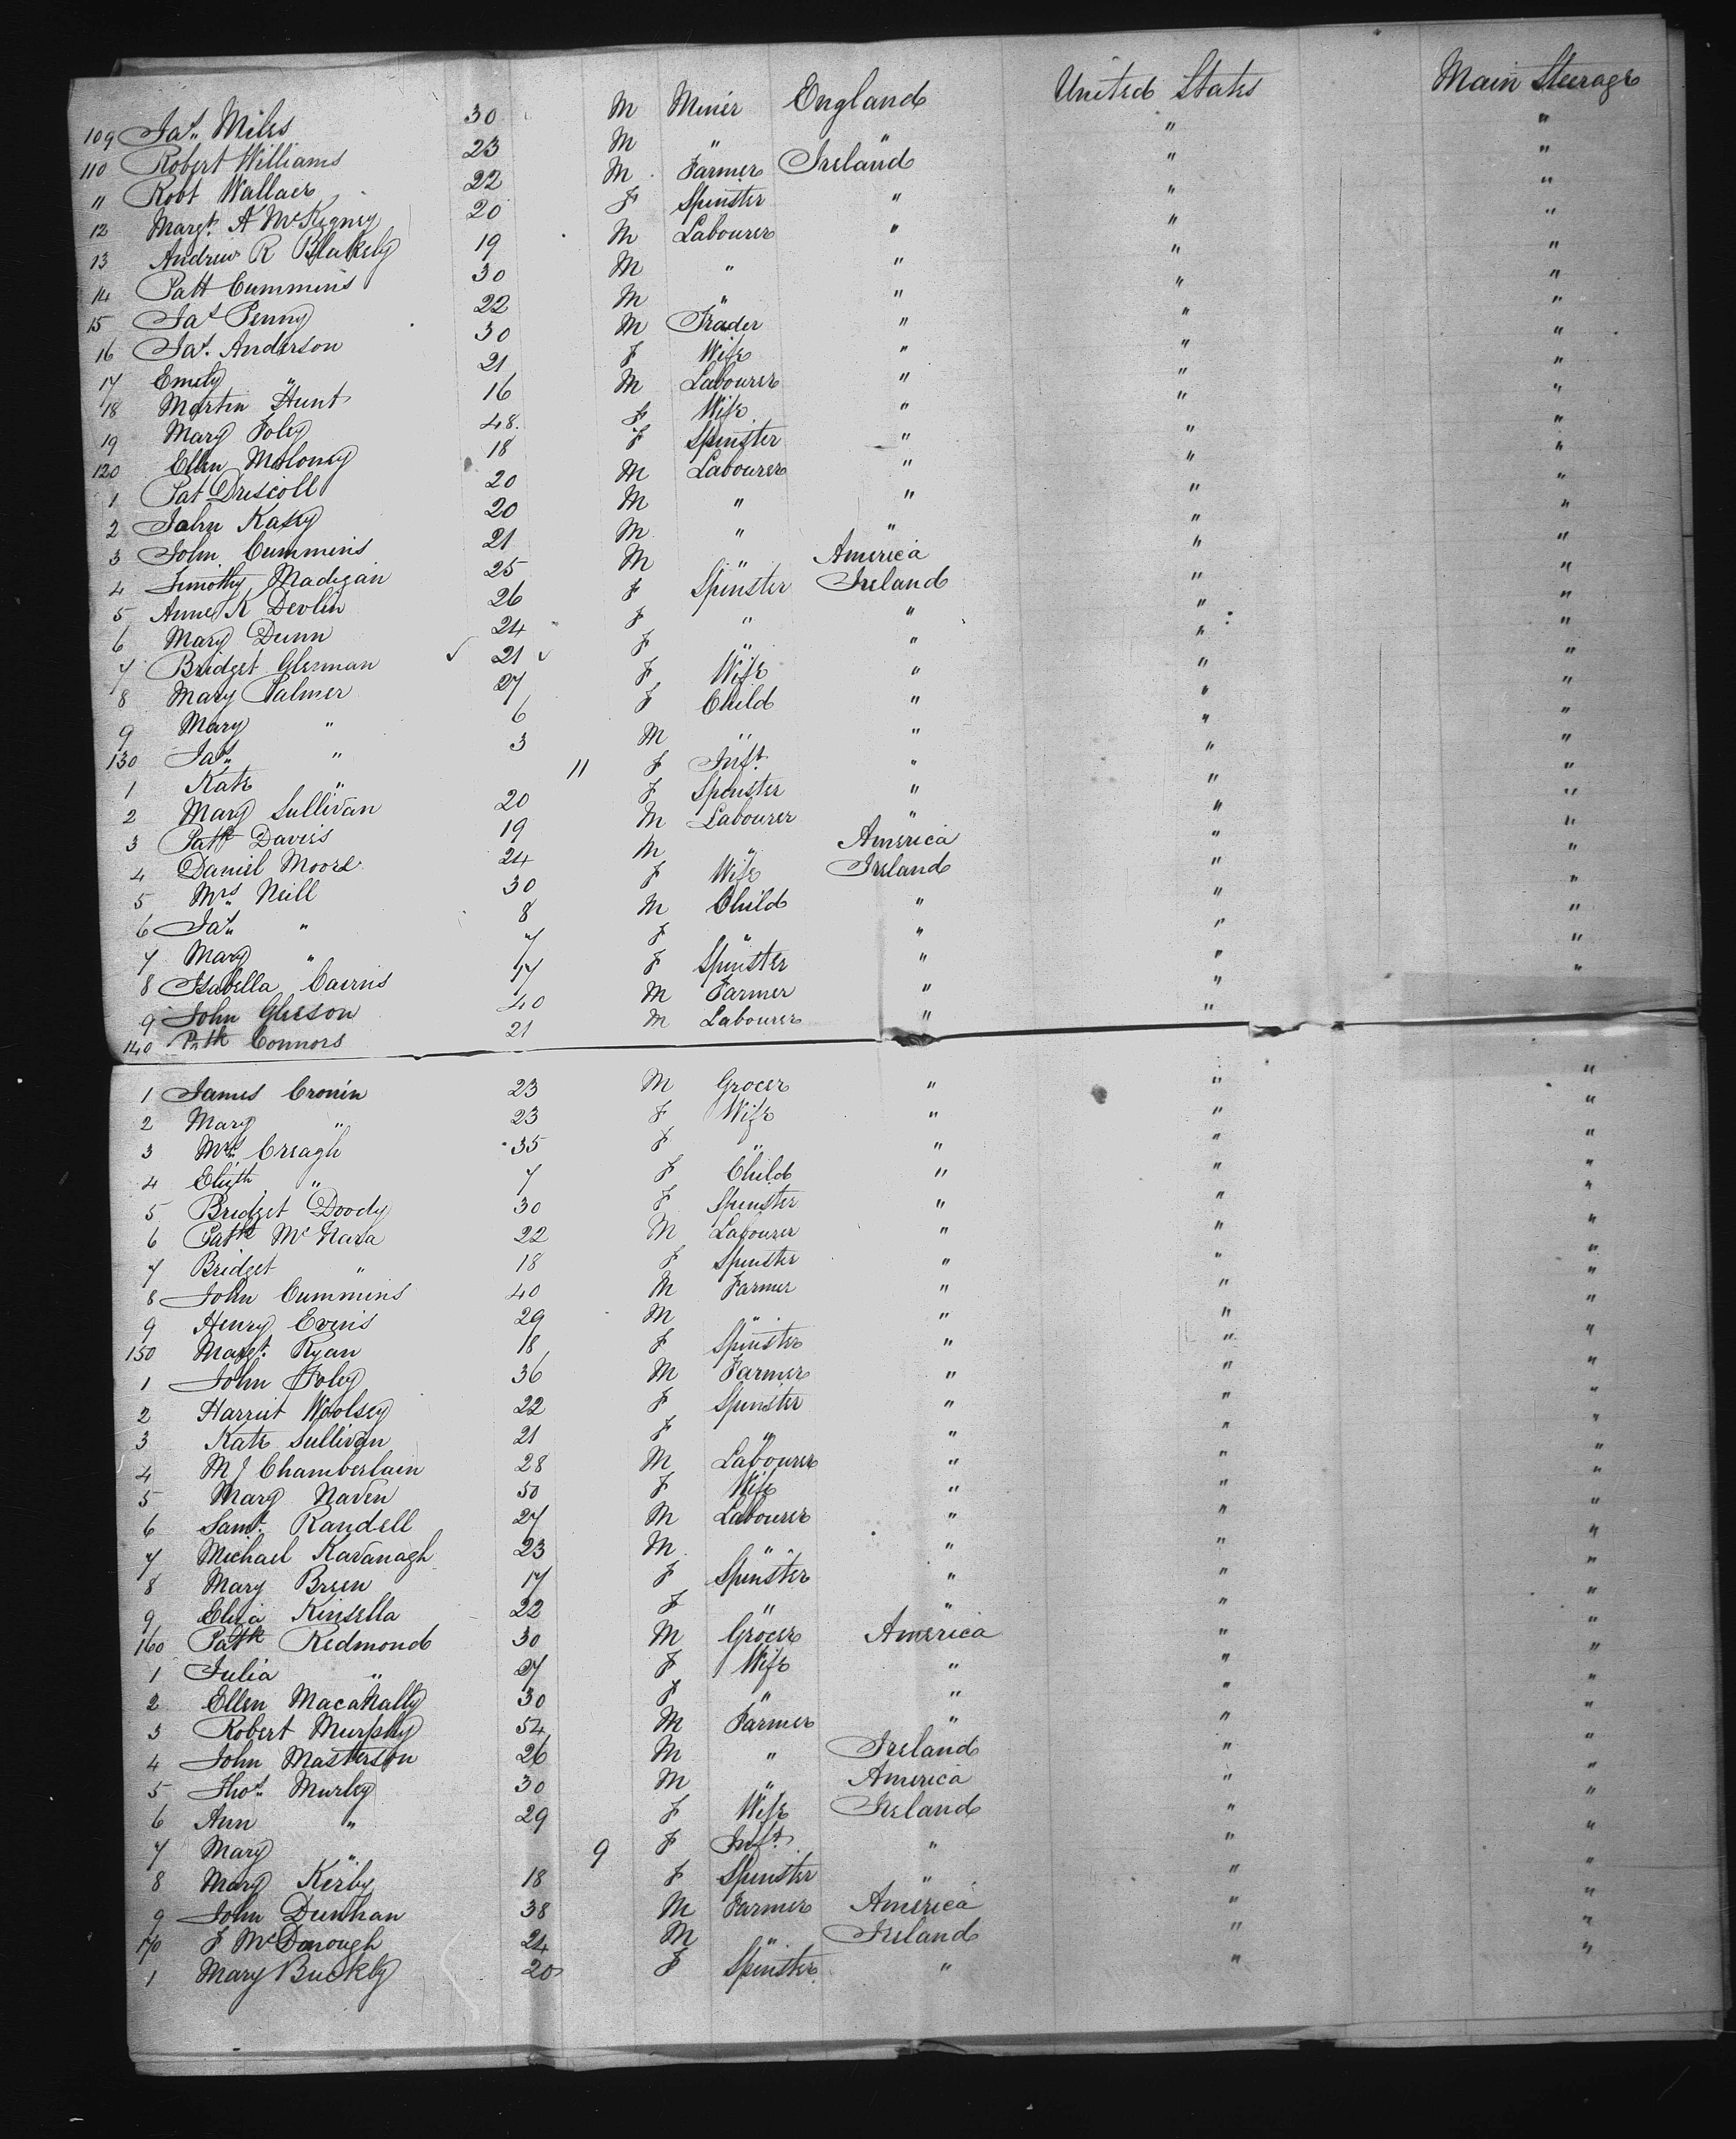 109 Jas. Miles 30 M Miner England United States Main Steerage
110 Robert Williams 23 M " " " "
11 Robt Wallace 22 M Farmer Ireland " "
12 Margt. A McKegney 20 F Spinster " " "
13 Andrew R Blakely 19 M Labourer " " "
14 Patt Cummins 30 M " " " "
15 Jas Penny 22 M " " " "
16 Jas. Anderson 30 M Trader " " "
17 Emily " 21 F Wife " " "
18 Martin Hunt 16 M Labourer " " "
19 Mary Foley 48 F Wife " " "
120 Ellen Moloney 18 F Spinster " " "
1 Pat Driscoll 20 M Labourer " " "
2 John Kasey 20 M " " " "
3 John Cummins 21 M " " " "
4 Timothy Madigan 25 M " America " "
5 Anne K Devlin 26 F Spinster Ireland " "
6 Mary Dunn 24 F " " " "
7 Bridget Glennan 21 F " " " "
8 Mary Palmer 27 F Wife " " "
9 Mary " 6 F Child " " "
130 Jas. " 3 M " " " "
1 Kate " 11 F Inft. " " "
2 Mary Sullivan 20 F Spinster " " "
3 Patk Davies 19 M Labourer " " "
4 Daniel Moore 24 M " America " "
5 Mrs. Neill 30 F Wife Ireland " "
6 Jas. " 8 M Child " " "
7 Mary " 7 F " " " "
8 Isabella Cairns 17 F Spinster " " "
9 John Gleeson 40 M Farmer " " "
140 Patk Connors 21 M Labourer " "
1 James Cronin 23 M Grocer " " "
2 Mary " 23 F Wife " " "
3 Mrs. Creagh 35 F " " " "
4 Elizth " 7 F Child " " "
5 Bridget Doody 30 F Spinster " " "
6 Patk McNara 22 M Labourer " " "
7 Bridget " 18 F Spinster " " "
8 John Cummins 40 M Farmer " " "
9 Henry Evens 29 M " " " "
150 Margt. Ryan 18 F Spinster " " "
1 John Foley 36 M Farmer " " "
2 Harriet Woolsey 22 F Spinster " " "
3 Kate Sullivan 21 F " " " "
4 M J Chamberlain 28 M Labourer " " "
5 Mary Naven 50 F Wife " " "
6 Saml. Randell 27 M Labourer " " "
7 Michael Kavanagh 23 M " " " "
8 Mary Breen 17 F Spinster " " "
9 Eliza Kinsella 22 F " " " "
160 Patk Redmond 30 M Grocer America " "
1 Julia " 27 F Wife " " "
2 Ellen MacaNally 30 F " " " "
3 Robert Murphy 54 M Farmer " " "
4 John Masterson 26 M " Ireland " "
5 Thos. Murley 30 M " America " "
6 Ann " 29 F Wife Ireland " "
7 Mary " 9 F Inft. " " "
8 Mary Kirby 18 F Spinster " " "
9 John Dunhan 38 M Farmer America " "
170 J McDonough 24 M " Ireland " "
1 Mary Buckly 20 F Spinster " " "